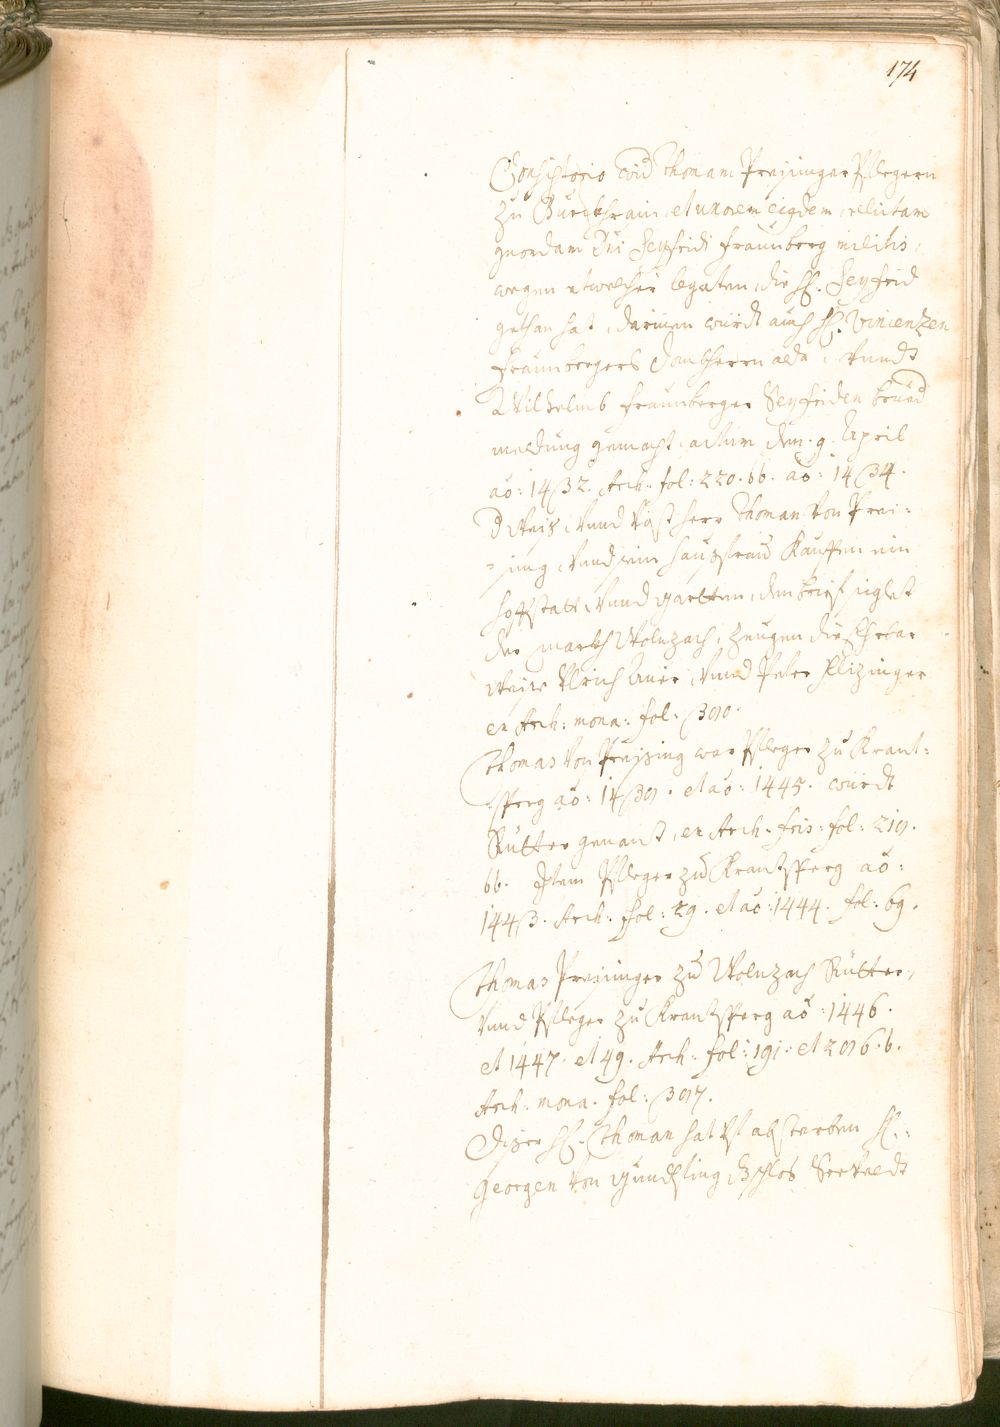 174
Consistorio wid Thomam Preysinger Pflegern
zu Burckhrain, et uxorem eigdem, relictam
quondam Dni Seyfridi fraunberg militis,
wegen etwelcher legaten, die H. Seyfrid
gethan hat, darinen würdt auch H. Vincenzen
fraunbergers Dombherrn alda, Vnndt
Wilhelmb fraunberger Seyfriden brued
meldung gemacht. actum den. 9. April
ao: 1432. Arch. fol: 220. bb. ao: 1434.
d Veiß, Vnnd Vösst herr Thoman Von Prei:
=sing, Vnnd sein haußfrau Kauffen ein
hoffstatt, Vnnd gartten, den brief siglet
der markh Wolnzach, Zeugen die Ehrbar
Weise Vlrich Auer, Vnnd Peter Flizinger
ex Arch: mona: fol. 300.
Thomas Von Preysing war Pfleger zu Krant:
sperg ao: 1439. et ao: 1445. würdt
Rütter genant, ex Arch. fris: fol: 219.
bb. Item Pfleger zu Krantsperg ao:
1443. Arch. fol: 29. et ao: 1444. fol: 69.
Thomas Preysinger zu Wolnzach Rütter,
Vnnd Pfleger zu Krantsperg ao: 1446.
et 1447. et 49. Arch. fol: 191. et 206. b.
Arch: mona. fol: 307.
Diser H. Thoman hat Vf absterben H.:
Georgen Von Gundling Gschlos Seeveldt